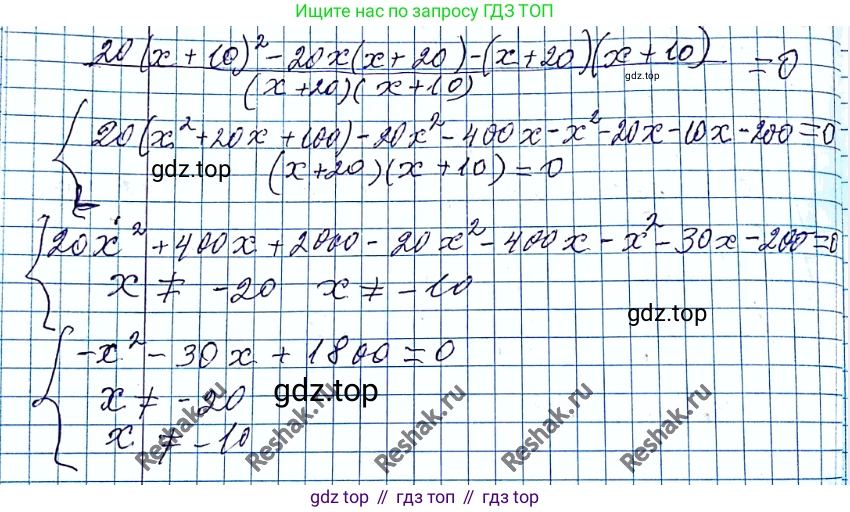 Ищите нас по запросу ГДЗ ТОП
20(x+10)² - 20x(x+20) - (x+20)(x+10)
= 0
(x+20)(x+10)
gdz.top
20(x²+20x+100) - 20x² - 400x - x² - 20x - 10x - 200 = 0
gdz.top
(x+20)(x+10) = 0
20x² + 400x + 2000 - 20x² - 400x - x² - 30x - 200 = 0
x ≠ -20 x ≠ -10
gdz.top
-x² - 30x + 1800 = 0
x ≠ -20
gdz.top
x ≠ -10
Reshak.ru
Reshak.ru
Reshak.ru
Reshak.ru
Reshak.ru
gdz top // гдз топ // gdz top